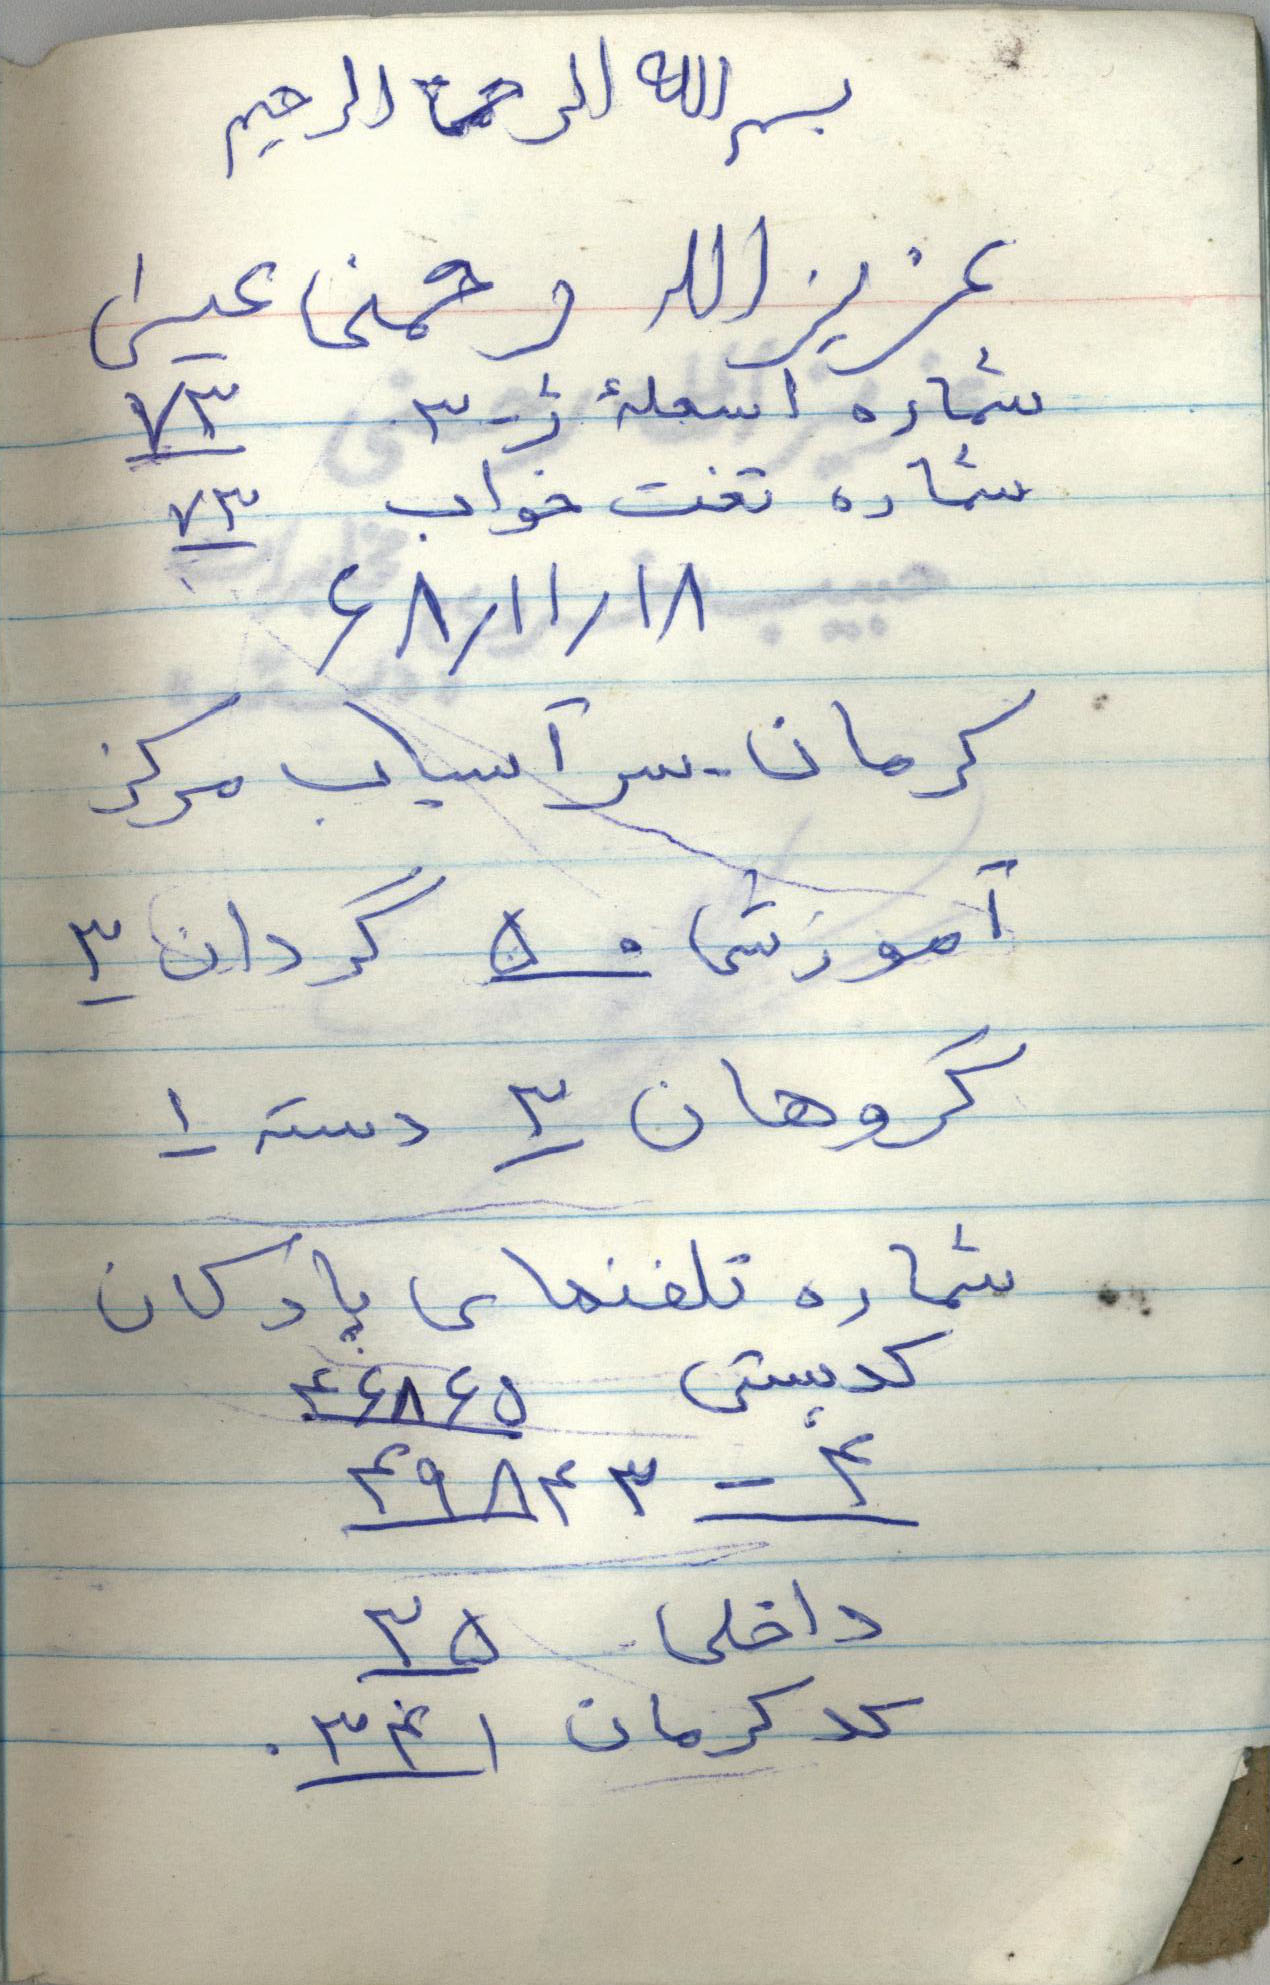 بسم الله الرحمن الرحیم
عزیزالله رحمنی عیسی
شماره اسلحهٔ ژ-۳ ۷۳
شماره تخت خواب ۷۳
۶۸/۱۱/۱۸
کرمان-سرآسیاب مرکز
آموزشی ۰۵ گردان ۲
گروهان ۲ دسته ۱
شماره تلفنهای پادگان
کدپستی ۴۶۸۶۵
۴۹۸۴۳-۴
داخلی ۲۵
کد کرمان ۰۳۴۱